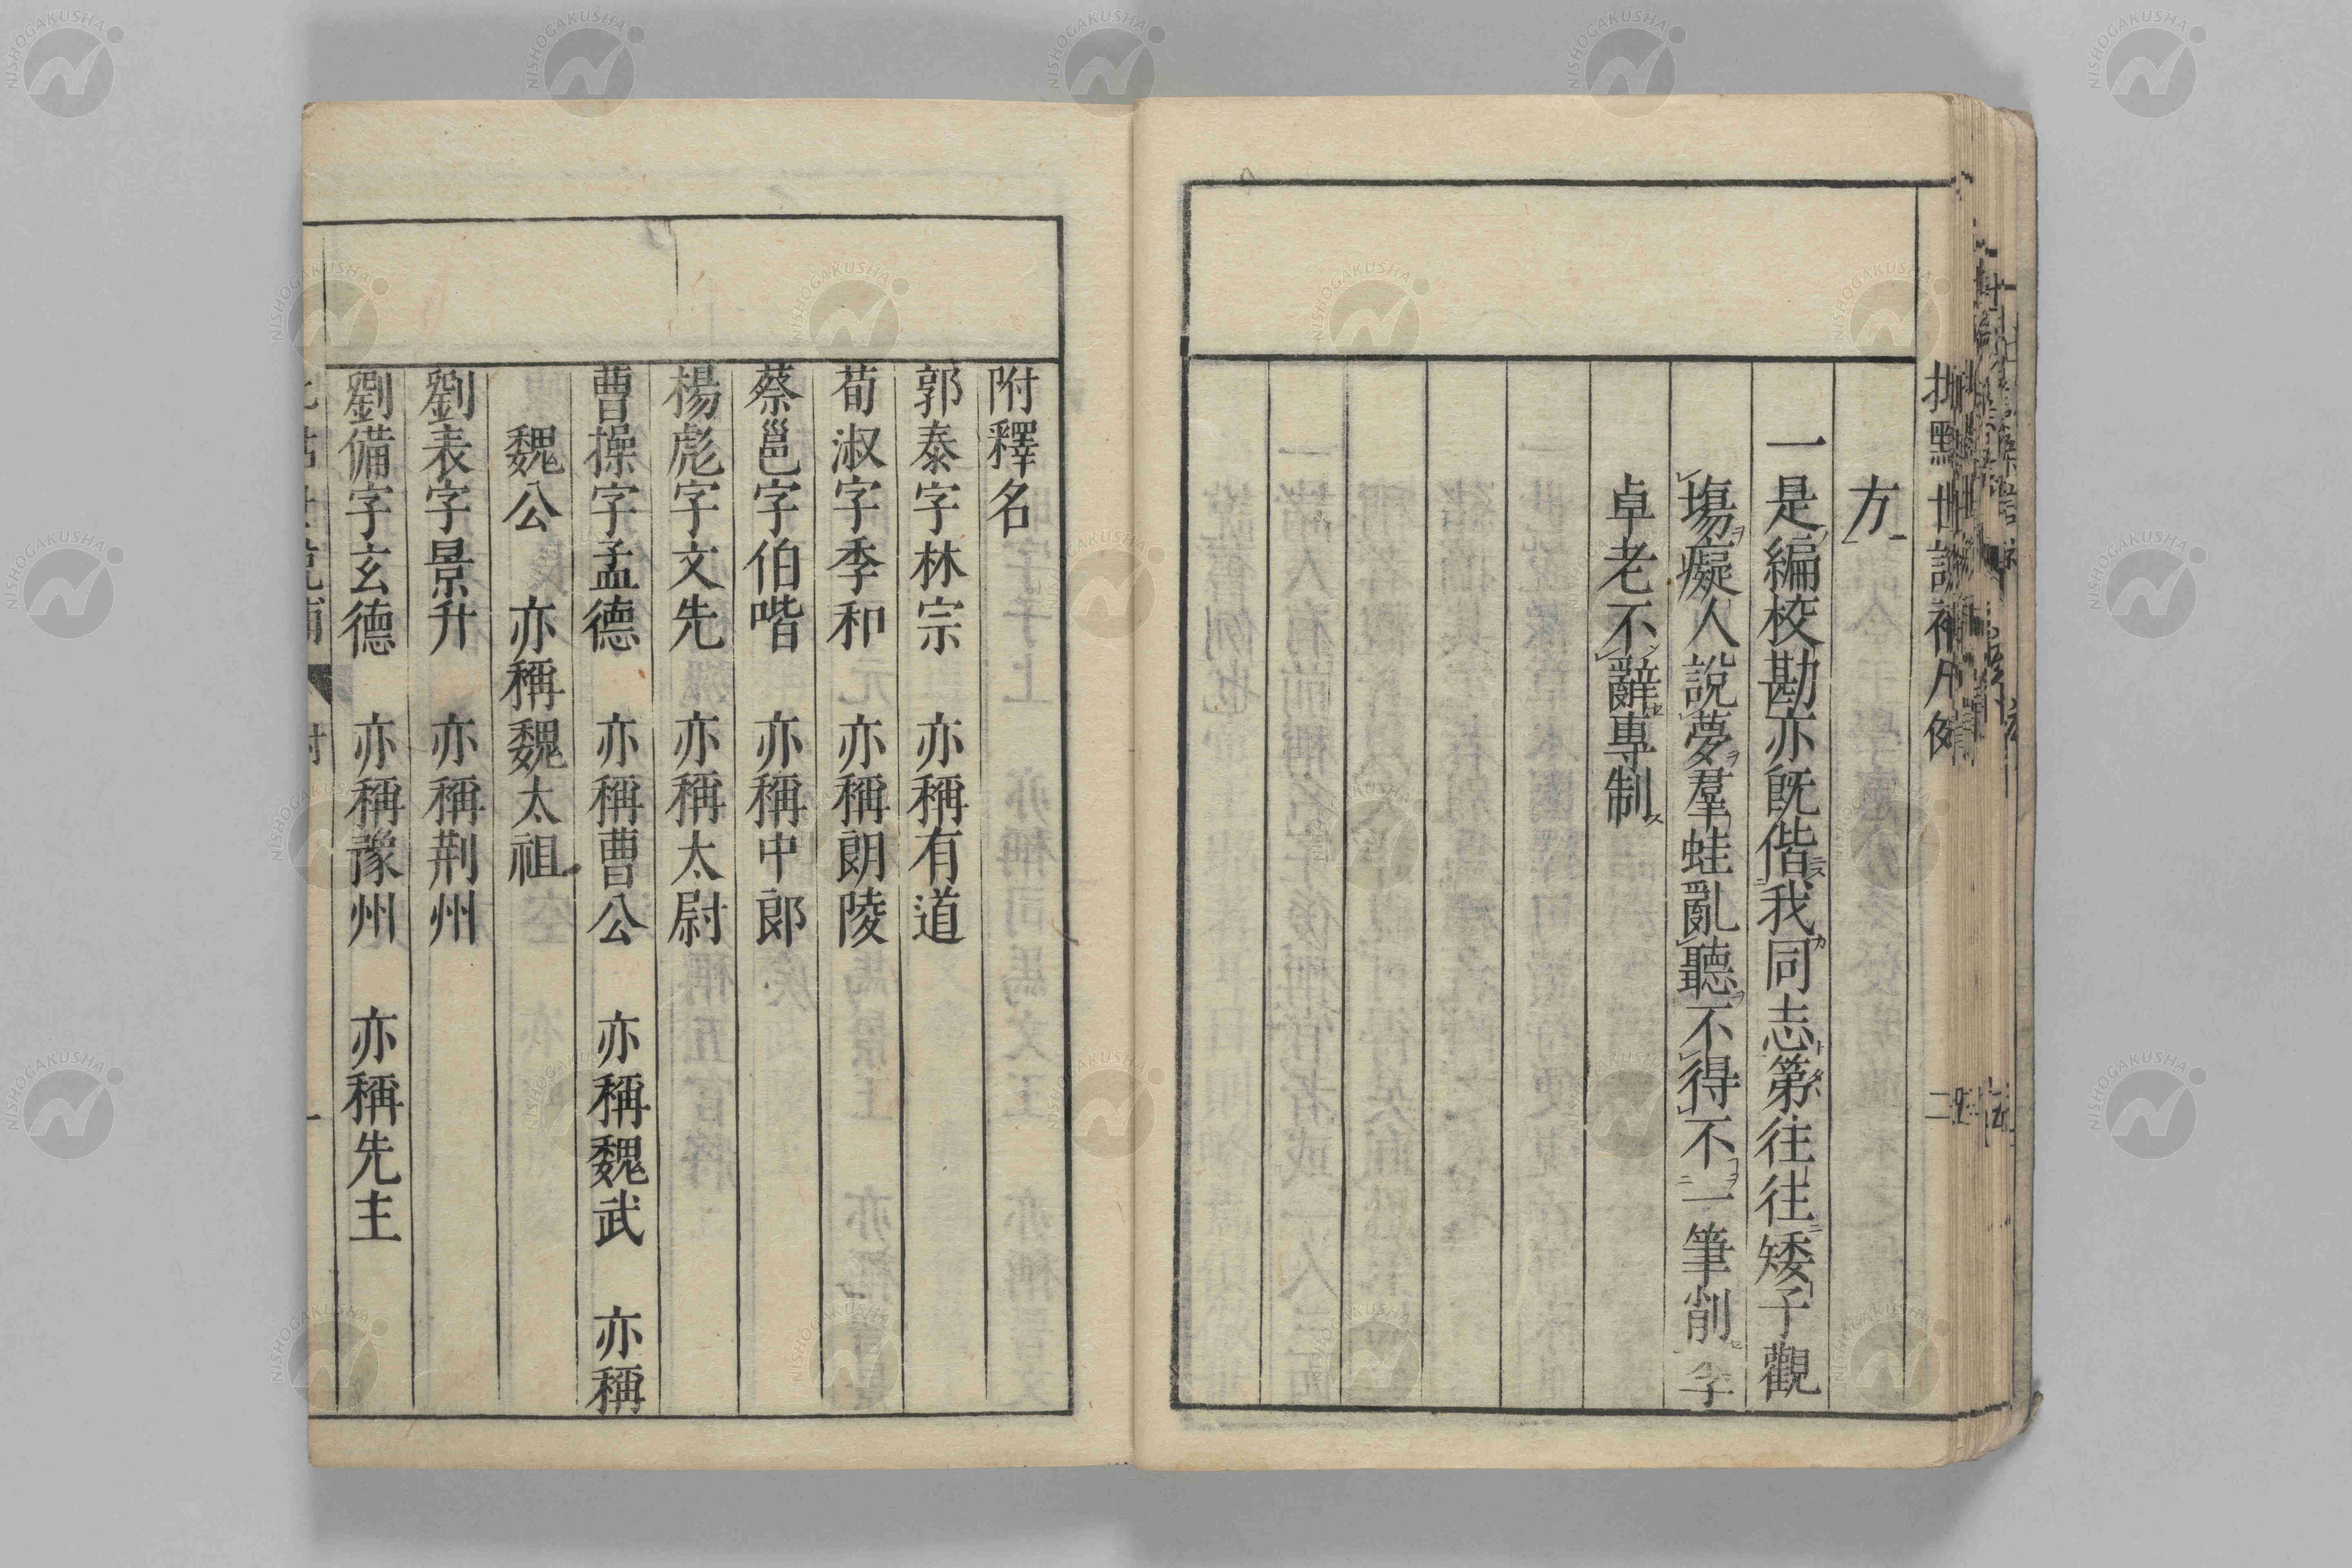 批點世說補凡例 二
方
一是編校勘亦既偕我同志第往往矮子觀
塲癡人說夢羣蛙亂聽不得不一筆削李
卓老不辭專制
附釋名
郭泰字林宗 亦稱有道
荀淑字季和 亦稱朗陵
蔡邕字伯喈 亦稱中郎
楊彪字文先 亦稱太尉
曹操字孟德 亦稱曹公 亦稱魏武 亦稱
魏公 亦稱魏太祖
劉表字景升 亦稱荆州
劉備字玄德 亦稱豫州 亦稱先主
NISHOGAKUSHA